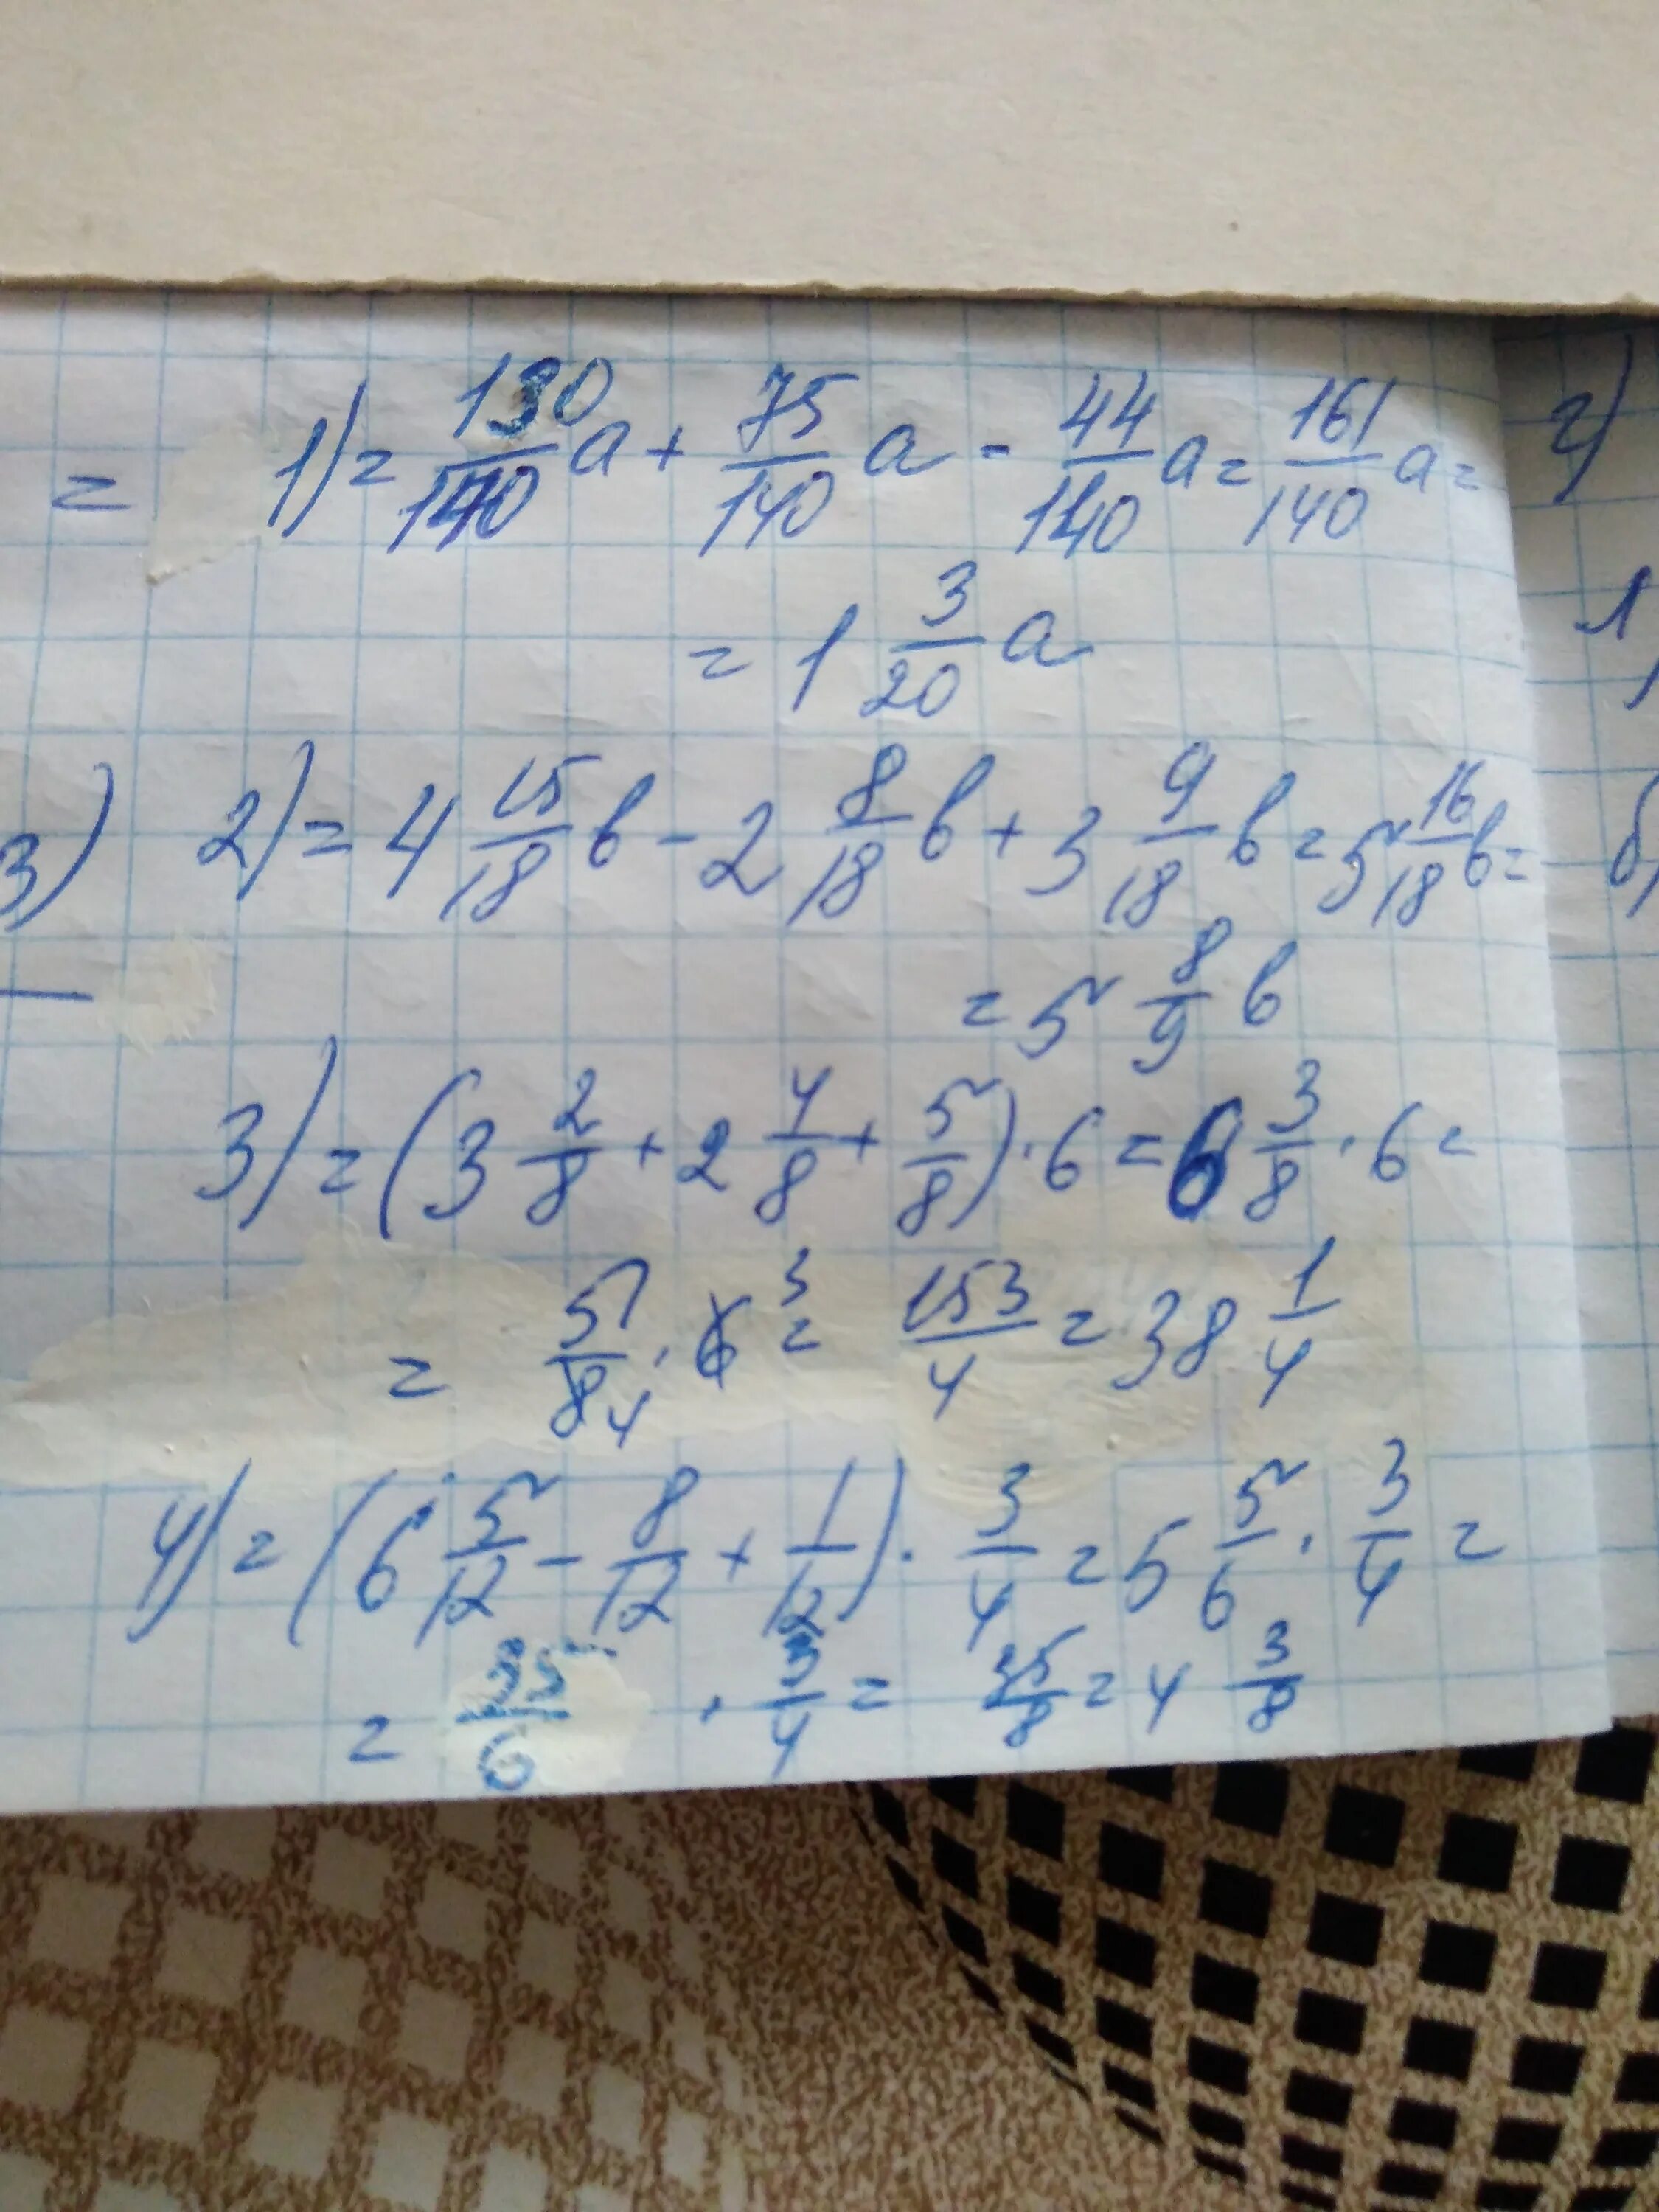 = 1) = 130/140 a + 75/140 a - 44/140 a = 161/140 a = г)
= 1 3/20 a
3) 2) = 4 15/18 b - 2 8/18 b + 3 9/18 b = 5 16/18 b = б)
= 5 8/9 b
3) = (3 2/8 + 2 4/8 + 5/8) · 6 = 6 3/8 · 6 =
= 51/8 4 · 6 3 = 153/4 = 38 1/4
4) = (6 5/12 - 8/12 + 1/12) · 3/4 = 5 5/6 · 3/4 =
= 35/6 · 3/4 = 35/8 = 4 3/8